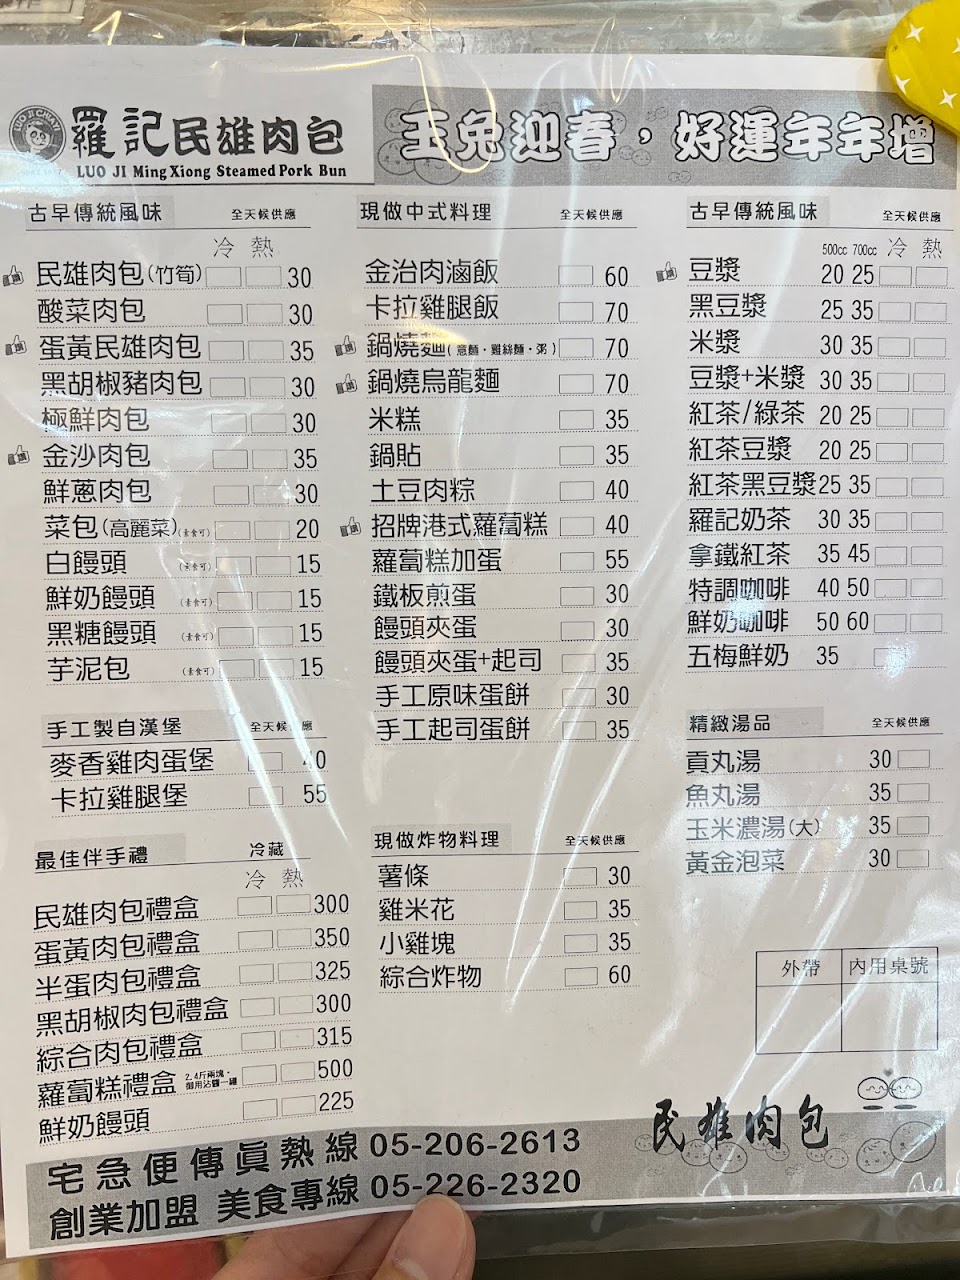 羅記民雄肉包
LUO JI Ming Xiong Steamed Pork Bun
玉兔迎春，好運年年增
古早傳統風味 全天候供應
冷 熱
民雄肉包(竹筍) 30
酸菜肉包 30
蛋黃民雄肉包 35
黑胡椒豬肉包 30
極鮮肉包 30
金沙肉包 35
鮮蔥肉包 30
菜包(高麗菜)(素食可) 20
白饅頭 (素食可) 15
鮮奶饅頭 (素食可) 15
黑糖饅頭 (素食可) 15
芋泥包 (素食可) 15
手工製自漢堡 全天候應
麥香雞肉蛋堡 40
卡拉雞腿堡 55
最佳伴手禮 冷藏
冷 熱
民雄肉包禮盒 300
蛋黃肉包禮盒 350
半蛋肉包禮盒 325
黑胡椒肉包禮盒 300
綜合肉包禮盒 315
蘿蔔糕禮盒 2.4斤兩塊，御用沾醬一罐 500
鮮奶饅頭 225
現做中式料理 全天候供應
金治肉滷飯 60
卡拉雞腿飯 70
鍋燒麵(意麵·雞絲麵·粥) 70
鍋燒烏龍麵 70
米糕 35
鍋貼 35
土豆肉粽 40
招牌港式蘿蔔糕 40
蘿蔔糕加蛋 55
鐵板煎蛋 30
饅頭夾蛋 30
饅頭夾蛋+起司 35
手工原味蛋餅 30
手工起司蛋餅 35
現做炸物料理 全天候供應
薯條 30
雞米花 35
小雞塊 35
綜合炸物 60
古早傳統風味 全天候供應
500cc 700cc 冷 熱
豆漿 20 25
黑豆漿 25 35
米漿 30 35
豆漿+米漿 30 35
紅茶/綠茶 20 25
紅茶豆漿 20 25
紅茶黑豆漿 25 35
羅記奶茶 30 35
拿鐵紅茶 35 45
特調咖啡 40 50
鮮奶咖啡 50 60
五梅鮮奶 35
精緻湯品 全天候供應
貢丸湯 30
魚丸湯 35
玉米濃湯(大) 35
黃金泡菜 30
外帶 內用桌號
民雄肉包
宅急便傳真熱線 05-206-2613
創業加盟 美食專線 05-226-2320